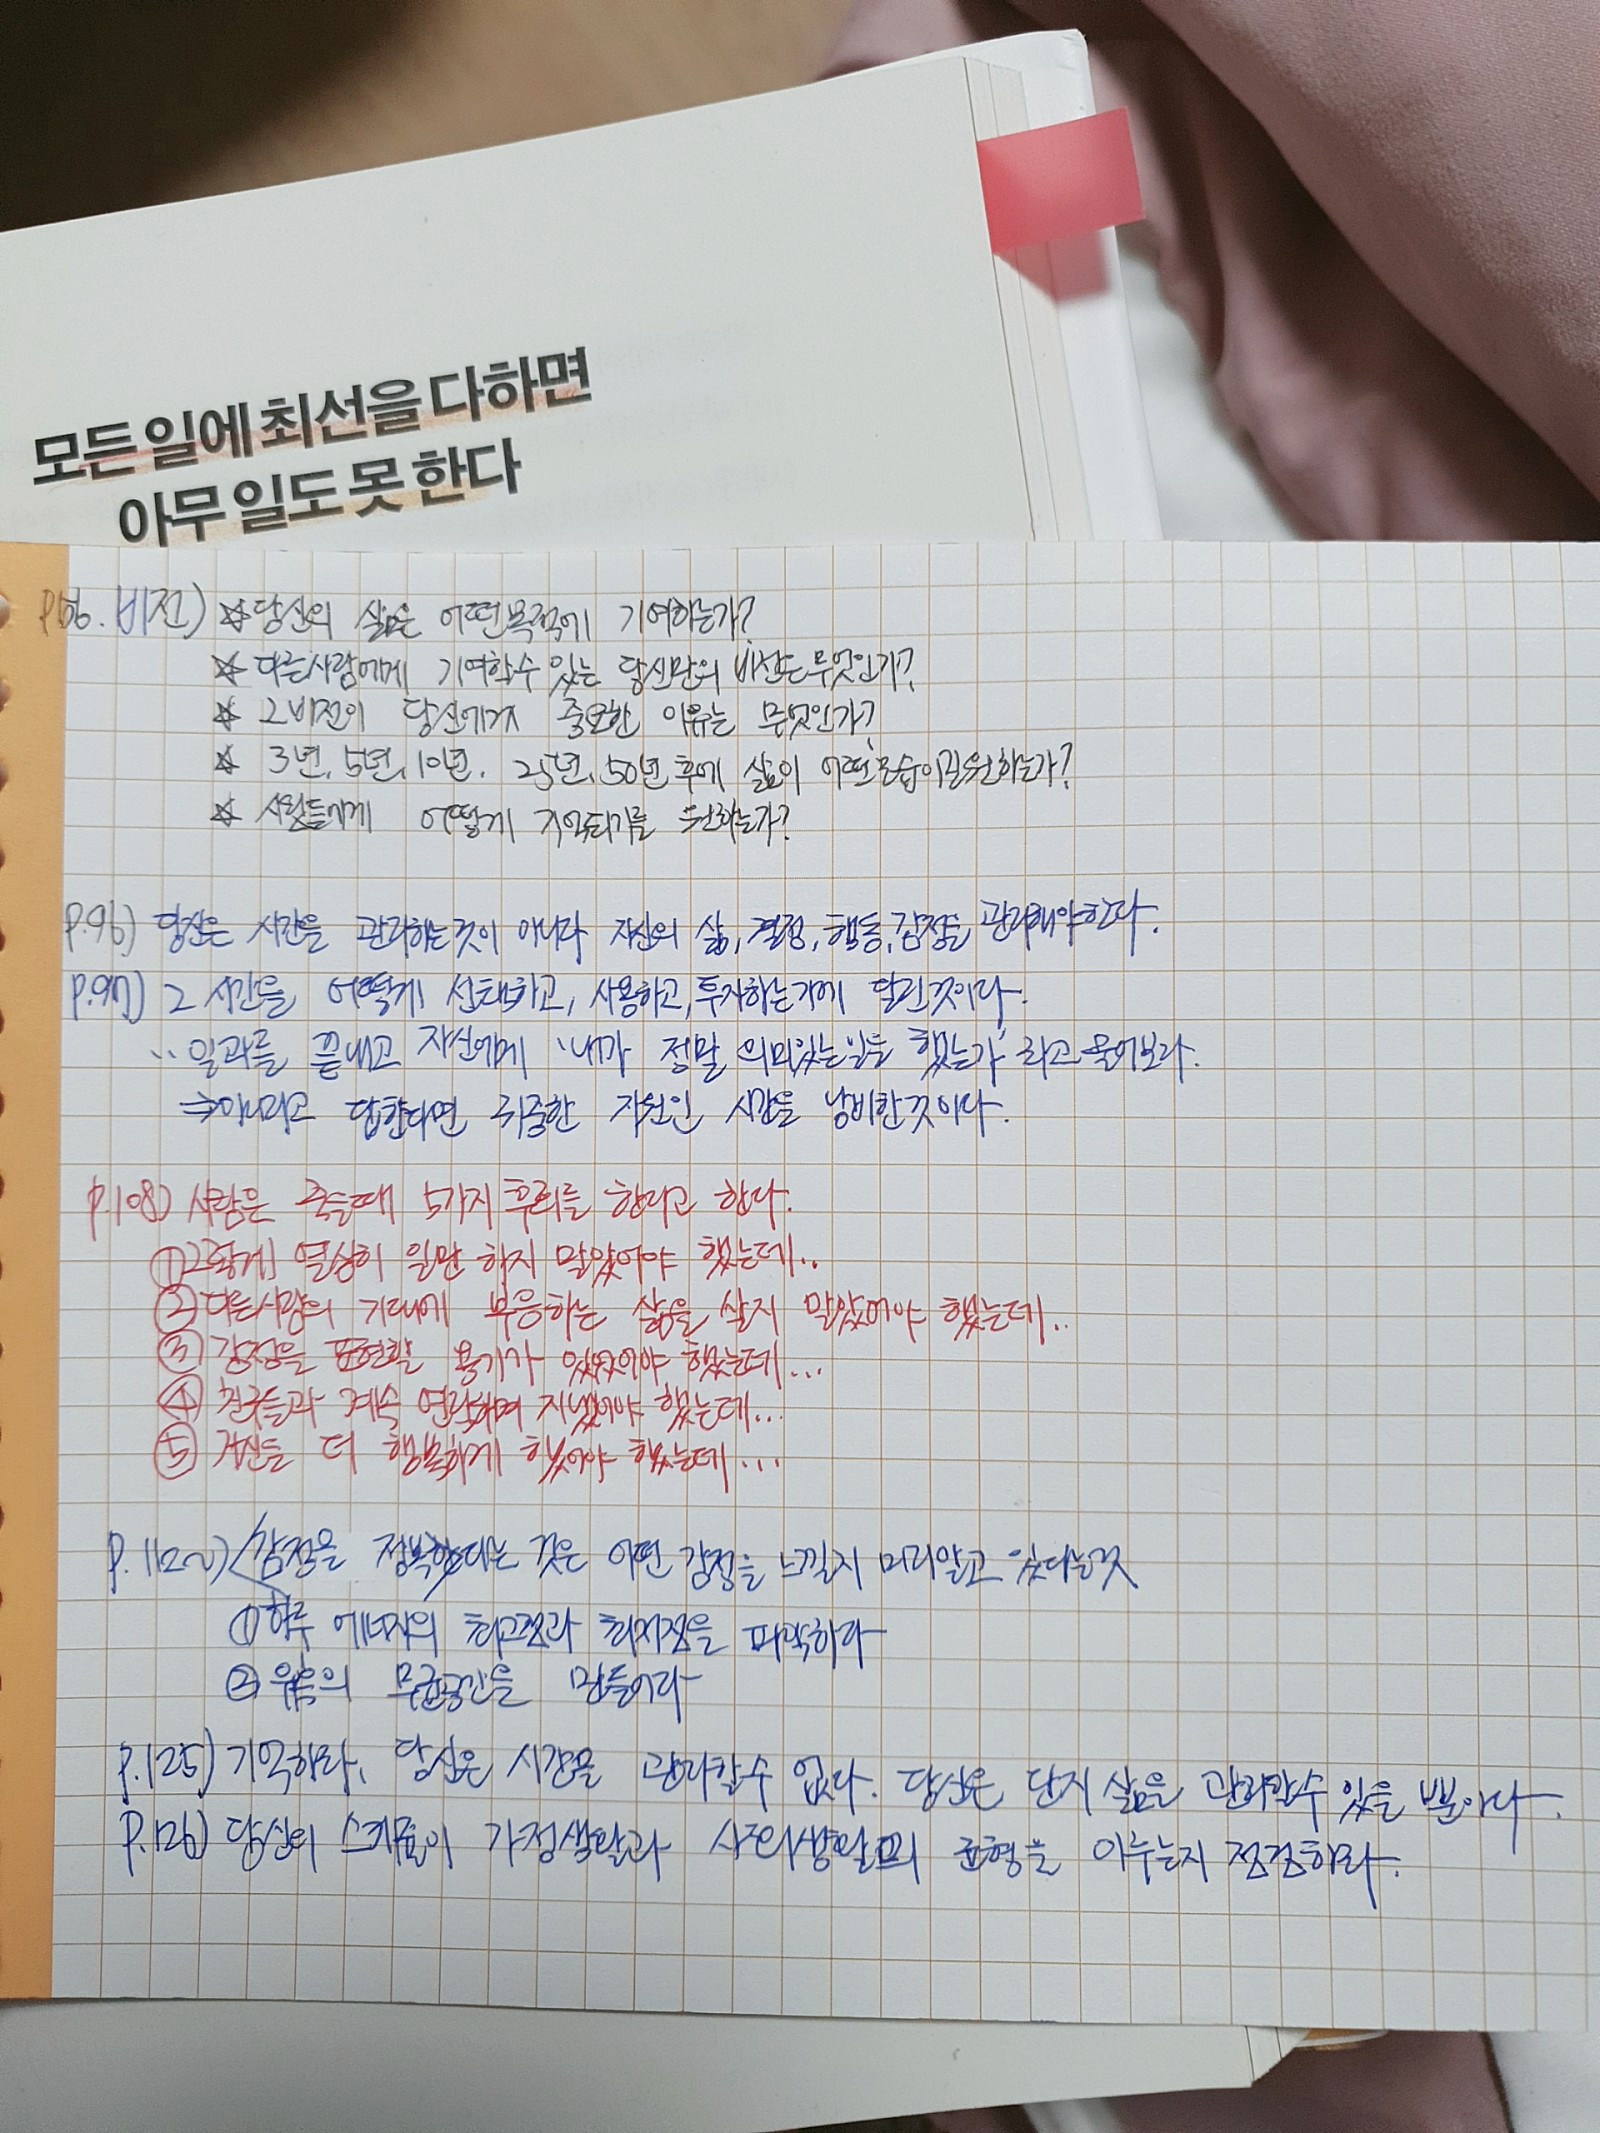 모든 일에 최선을 다하면
아무 일도 못 한다
비전) ☆당신의 삶은 어떤 목적에 기여하는가?
☆ 다른사람에게 기여할수 있는 당신만의 비전은 무엇인가?
☆ 그 비전이 당신에게 중요한 이유는 무엇인가?
☆ 3년, 5년, 10년, 25년, 50년 후에 삶이 어떤 모습이길 원하는가?
☆ 사람들에게 어떻게 기억되기를 원하는가?
P.96) 당신은 시간을 관리하는것이 아니라 자신의 삶, 결정, 행동, 감정을 관리해야한다.
P.97) 그 시간을 어떻게 선택하고, 사용하고, 투자하는가에 달린것이다.
∵ 일과를 끝내고 자신에게 '내가 정말 의미있는일을 했는가' 라고 물어보라.
⇒아니라고 답한다면 귀중한 자원인 시간을 낭비한것이다.
P.108) 사람은 죽을때 5가지 후회를 한다고 한다.
①그렇게 열심히 일만 하지 말았어야 했는데..
②다른사람의 기대에 부응하는 삶을 살지 말았어야 했는데..
③ 감정을 표현할 용기가 있었어야 했는데...
④ 친구들과 계속 연락하며 지냈어야 했는데...
⑤ 자신을 더 행복하게 했어야 했는데...
P.112~) 감정을 정복한다는 것은 어떤 감정을 느낄지 미리알고 있다는것
①하루 에너지의 최고점과 최저점을 파악하라
② 웃음의 무균공간을 만들어라
P.125) 기억하라, 당신은 시간을 관리할수 없다. 당신은 단지 삶을 관리할수 있을 뿐이다.
P.126) 당신의 스케줄이 가정생활과 사회생활의 균형을 이루는지 점검하라.